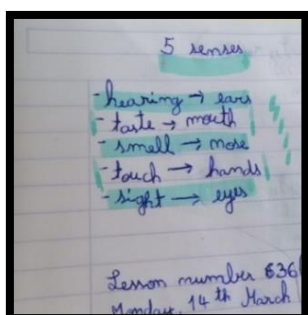 5 senses
- hearing → ears
- taste → mouth
- smell → nose
- touch → hands
- sight → eyes
Lesson number 636
Monday, 14th March